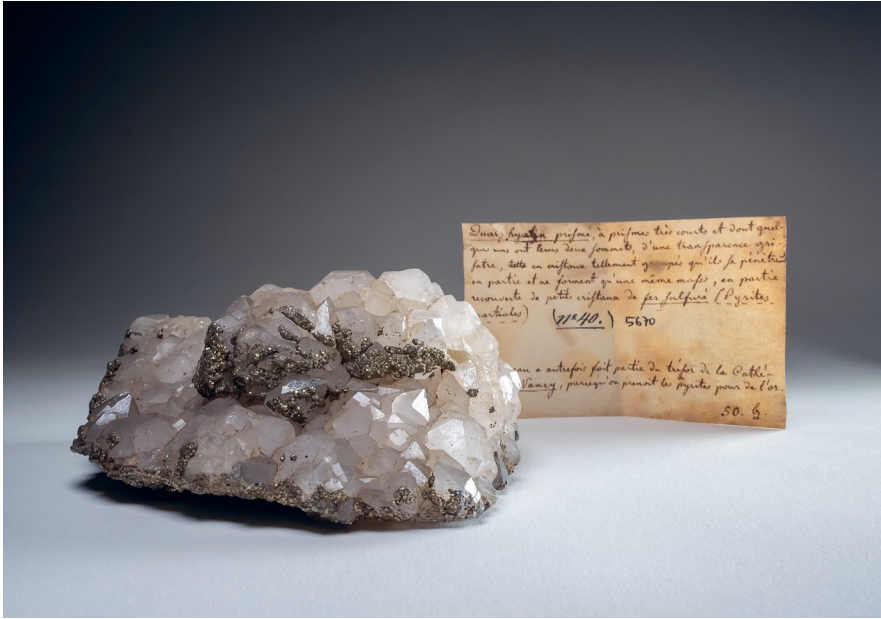 Quarz hyalin prisme, à prismes très courts et dont quel-
ques uns ont leurs deux sommets, d'une transparence gri
satre, en cristaux tellement groupés qu'ils se pénètrent
en partie et ne forment qu'une même masse, en partie
recouverte de petits cristaux de fer sulfuré (Pyrites
martiales) (nº 40.) 5670
a autrefois fait partie du trésor de la Cathé-
Nancy, parcequ'on prenoit les pyrites pour de l'or.
50.